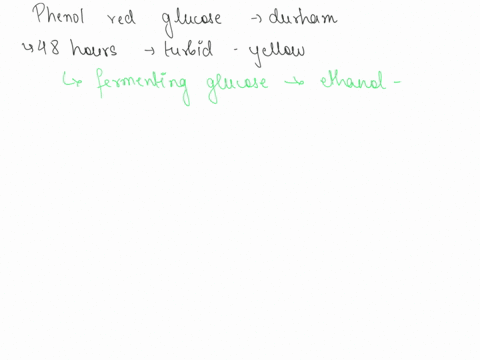 Phenol red glucose → durham
↳ 48 hours → turbid - yellow
↳ fermenting glucose → ethanol -